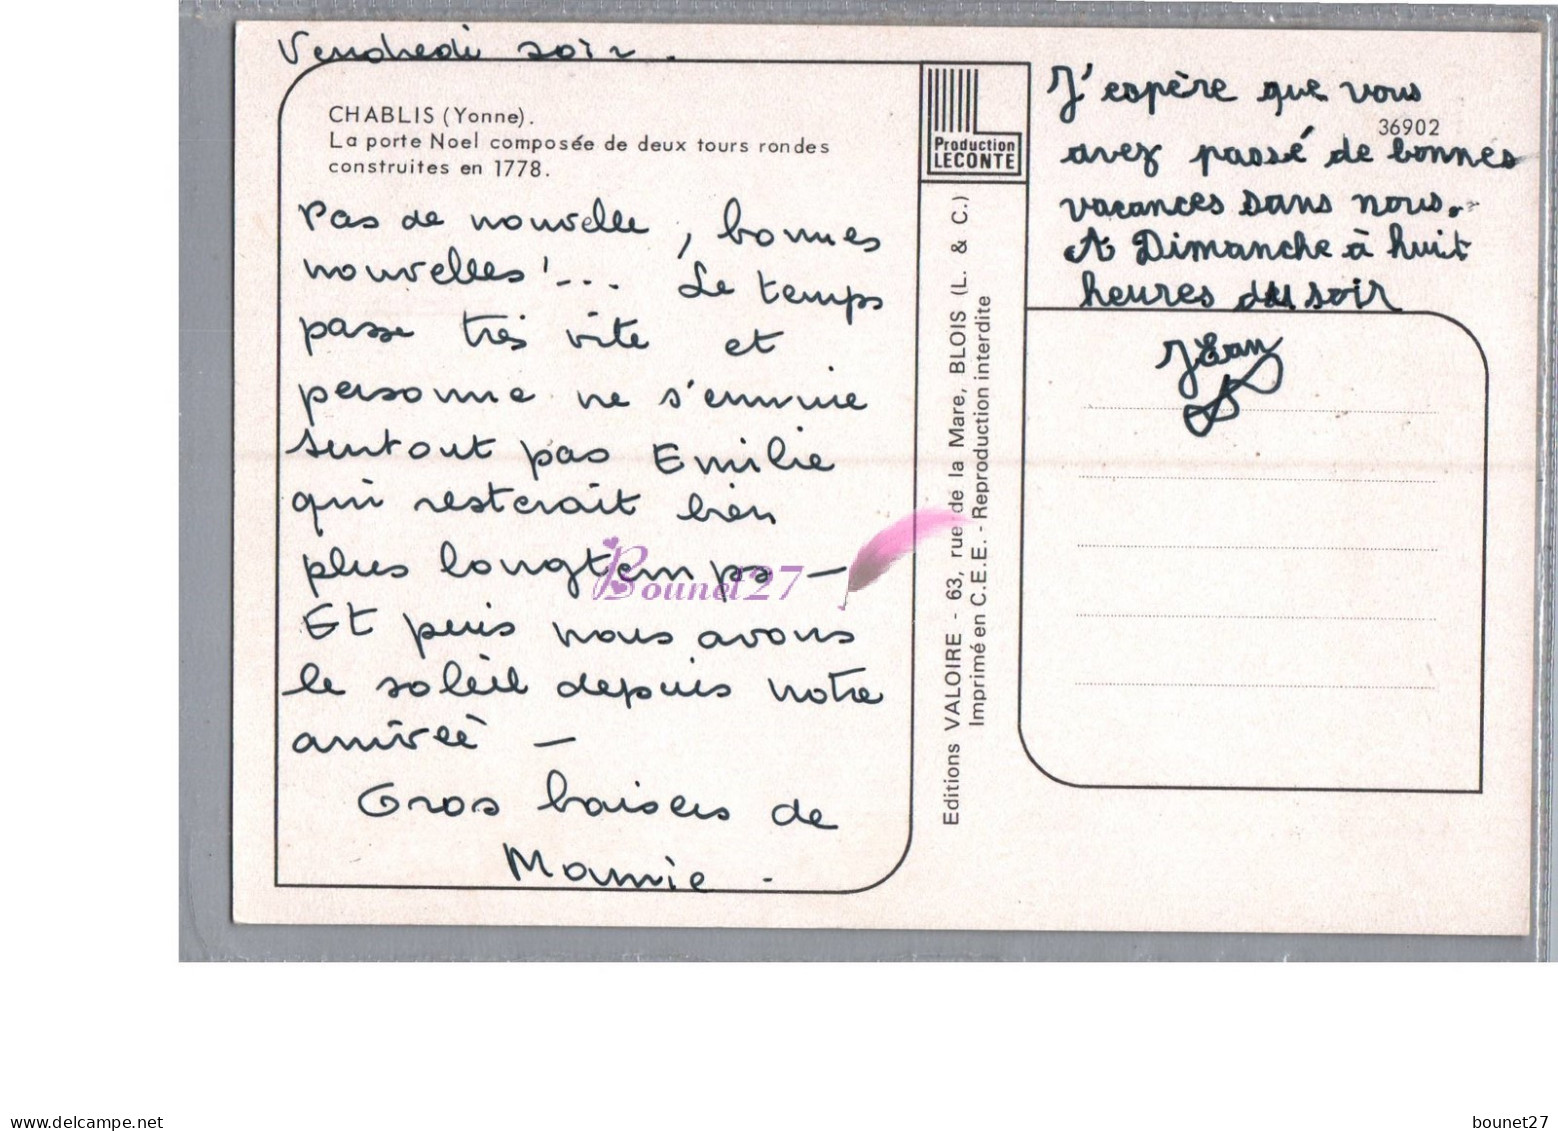 Vendredi soir.
CHABLIS (Yonne).
La porte Noel composée de deux tours rondes
construites en 1778.
Pas de nouvelle, bonnes
nouvelles !... Le temps
passe très vite et
personne ne s'ennuie
surtout pas Emilie
qui resterait bien
plus longtemps —
Et puis nous avons
le soleil depuis notre
arrivée —
Gros baisers de
Mamie.
Production
LECONTE
Editions VALOIRE - 63, rue de la Mare, BLOIS (L. & C.)
Imprimé en C.E.E. - Reproduction interdite
36902
J'espère que vous
avez passé de bonnes
vacances sans nous.
A Dimanche à huit
heures du soir
Jean
Bounet27
www.delcampe.net
bounet27